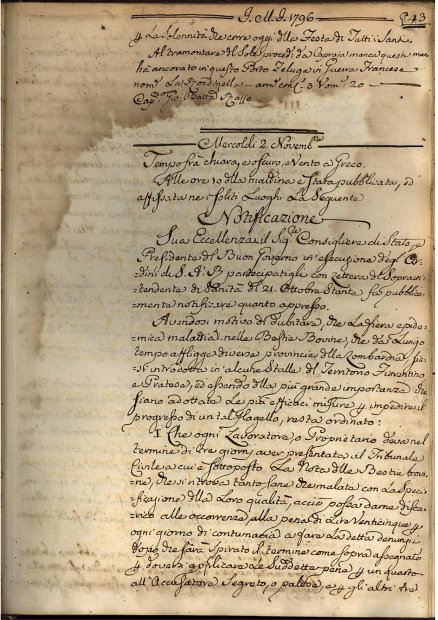 J. M. J. 1796 43
La Solennità che corre oggi della Festa di Tutti i Santi
Al tramontare del Sole procede da Capraja manca questa
ha ancorato in questo Porto Feluga in Guerra Francese
nom.ta La Bondinella - arm. con C. 3 Vom. 20 -
Cap. Gio. Batta
Mercoldì 2. Novemb.re
Tempo frà chiaro, e oscuro, Vento a Greco.
Alle ore 10 della mattina è stata pubblicata, ed
affissata nei soliti Luoghi La Seguente
Notificazione
Sua Eccellenza il Sig.re Consigliere di Stato, e
Presidente del Buon Governo in esecuzione degl' Or-
dini di S. A. R. partecipatigli con Lettera del Soprain-
tendente di Sanità del 21. Ottobre Stante, fà pubblica-
mente notificare quanto appresso.
Avendosi motivo di dubitare, che La fiera epide-
mica malattia nelle Bestie Bovine, che da Lungo
tempo affligge diverse provincie della Lombardia, sia-
si introdotta in alcune Stalle del Territorio Fiorentino
e Pratese, ed essendo della più grande importanza che
siano adottate Le più efficaci misure per impedire il
progresso di un tal flagello, resta ordinato:
1. Che ogni Lavoratore, o Proprietario deva nel
termine di tre giorni, aver presentata il Tribunale
Civile a cui è sottoposto La Nota delle Bestie bovi-
ne, che si ritrova tanto sane che malate con La Speci-
ficazione della Loro qualità, acciò possa darne disca-
rico alle occorrenze, alla pena di Lire Venticinque per
ogni giorno di contumacia a fare La detta denunzia
dopo che sarà Spirato il termine come sopra assegnato
e dovrà applicare Le Suddette pene per un quarto
all' Accusatore Segreto, o palese, e per gli altri tre